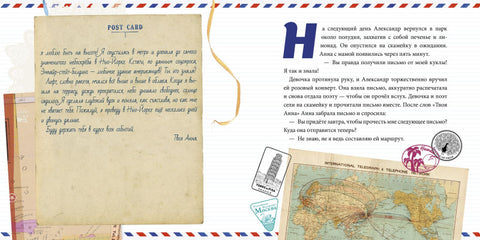 POST CARD
Я люблю быть на высоте! Я спустилась в метро и доехала до самого
знаменитого небоскрёба в Нью-Йорке. Кстати, по данным опросов,
Эмпайр-стейт-билдинг — любимое здание американцев! Ты это знала?
Лифт, словно ракета, мчался всё выше и выше в облака. Когда я вы-
шла на террасу, дождь прекратился, небо
сделала глубокий вдох и поняла, как счастлива, но как ты
не хватает тебя! Пожалуй, я проведу в Нью-Йорке ещё несколько дней
и двинусь дальше.
Буду держать тебя в курсе всех событий,
Твоя Анна.
На следующий день Александр вернулся в парк
около полудня, захватив с собой печенье и ли-
монад. Он опустился на скамейку в ожидании.
Анна с мамой появились через пять минут.
— Вы правда получили письмо от моей куклы!
Я так и знала!
Девочка протянула руку, и Александр торжественно вручил
ей розовый конверт. Она взяла письмо, аккуратно распечатала
и снова отдала поэту — чтобы он прочёл вслух. Девочка и поэт
сели на скамейку и прочитали письмо вместе. После слов «Твоя
Анна» Анна забрала письмо и спросила:
— Вы придёте завтра, чтобы прочесть мне следующее письмо?
Куда она отправится теперь?
— Не знаю, не я ведь составляю ей маршрут.
INTERNATIONAL TELEGRAPH & TELEPHONE
МОСКВА